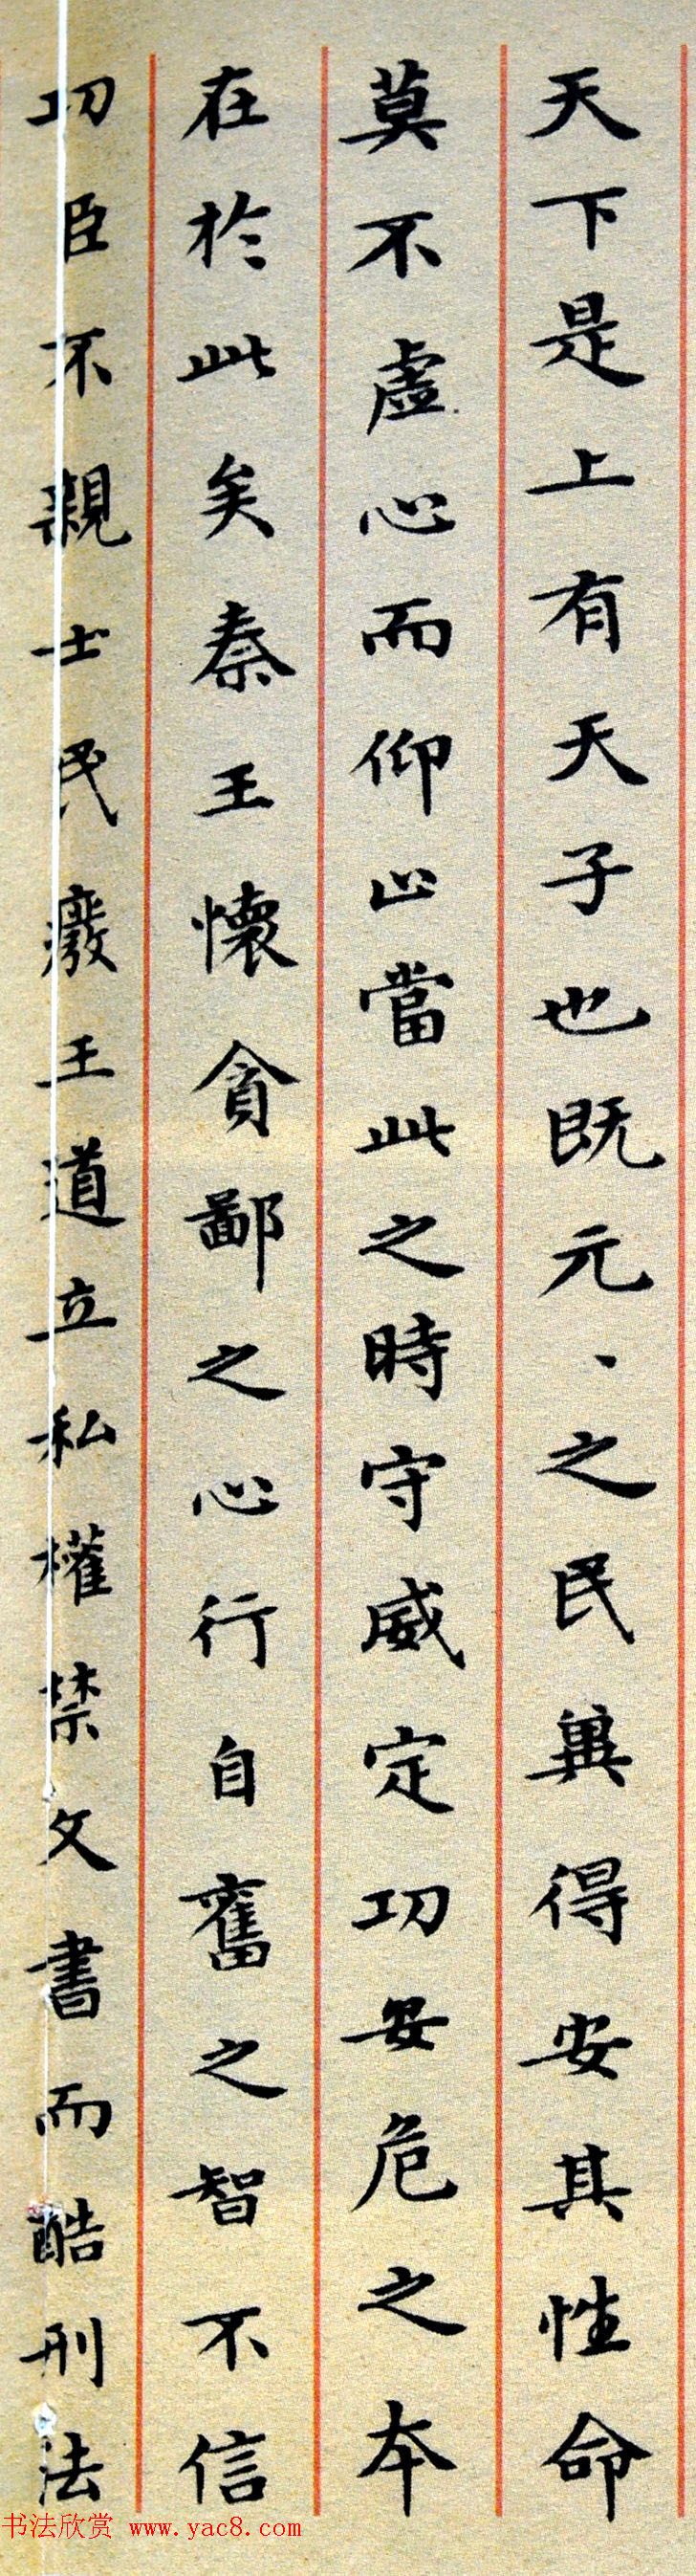 天下是上有天子也既元、之民兾得安其性命
莫不虛心而仰止當此之時守威定功安危之本
在於此矣秦王懷貪鄙之心行自奮之智不信
功臣不親士民癈王道立私權禁文書而酷刑法
书法欣赏 www.yac8.com